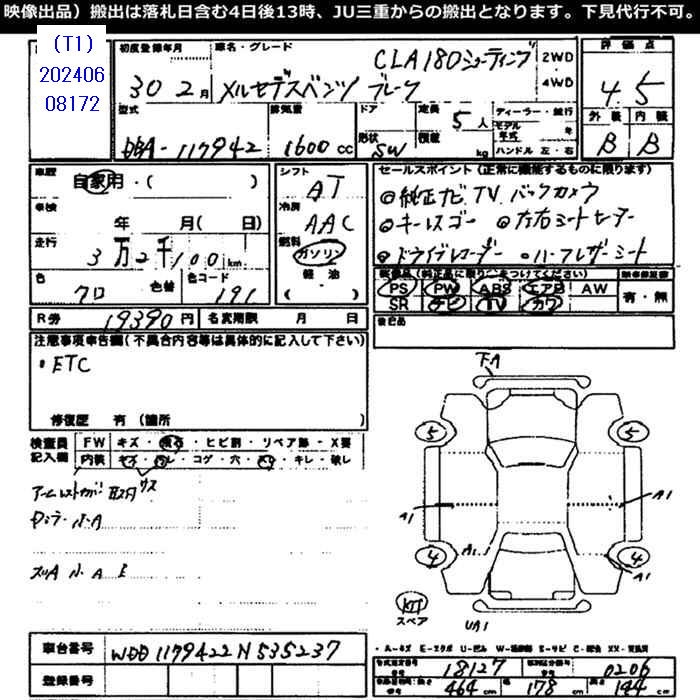 映像出品）搬出は落札日含む4日後13時、JU三重からの搬出となります。下見代行不可。
(T1)
202406
08172
初度登録年月
30 2月
車名・グレード
CLA180シューティング
メルセデスベンツ ブレーク
2WD
・
4WD
評価点
4 5
外装 内装
B B
型式
DBA-117942
排気量
1600 cc
ドア
形状
SW
定員 5人
積載 kg
ディーラー・並行
モデル年式 年
ハンドル 左・右
車歴
自家用・( )
車検
年 月( 日)
走行
3万2千100km
色
クロ
色替
色コード
191
シフト
AT
冷房
AAC
燃料
ガソリン
軽・油
( )
セールスポイント(正常に機能するものに限ります)
◎純正ナビ TV バックカメラ
◎キーレスゴー ◎左右シートヒーター
◎ドライブレコーダー ◎ハーフレザーシート
PS PW ABS エアB AW
SR ナビ TV カワ
有・無
後日品
R券 19390円
名変期限 月 日
注意事項車申告欄(不具合内容等は具体的に記入して下さい)
・ETC
修復歴 有(箇所 )
検査員
記入欄
FW キズ・飛石・ヒビ割・リペア跡・X要
内装 キズ・汚レ・コゲ・穴・スレ・キレ・破レ
小A
スリA 小A E
下A
5 5
A1 A1
A1
4 4
A1
スペア
UA1
車台番号 WDD1179422N535237
登録番号
型式指定番号 18127
類別区分番号 0206
464cm 178cm 144cm